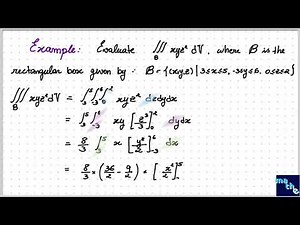 Example: Evaluate ∭_B xyz² dV, where B is the
rectangular box given by : B = {(x,y,z) | 3≤x≤5, -3≤y≤6, 0≤z≤2}
∭_B xyz² dV = ∫_3^5 ∫_-3^6 ∫_0^2 xyz² dzdydx
= ∫_3^5 ∫_-3^6 xy [z³/3]_0^2 dydx
= 8/3 ∫_3^5 x [y²/2]_-3^6 dx
= 8/3 × (36/2 - 9/2) × [x²/2]^5